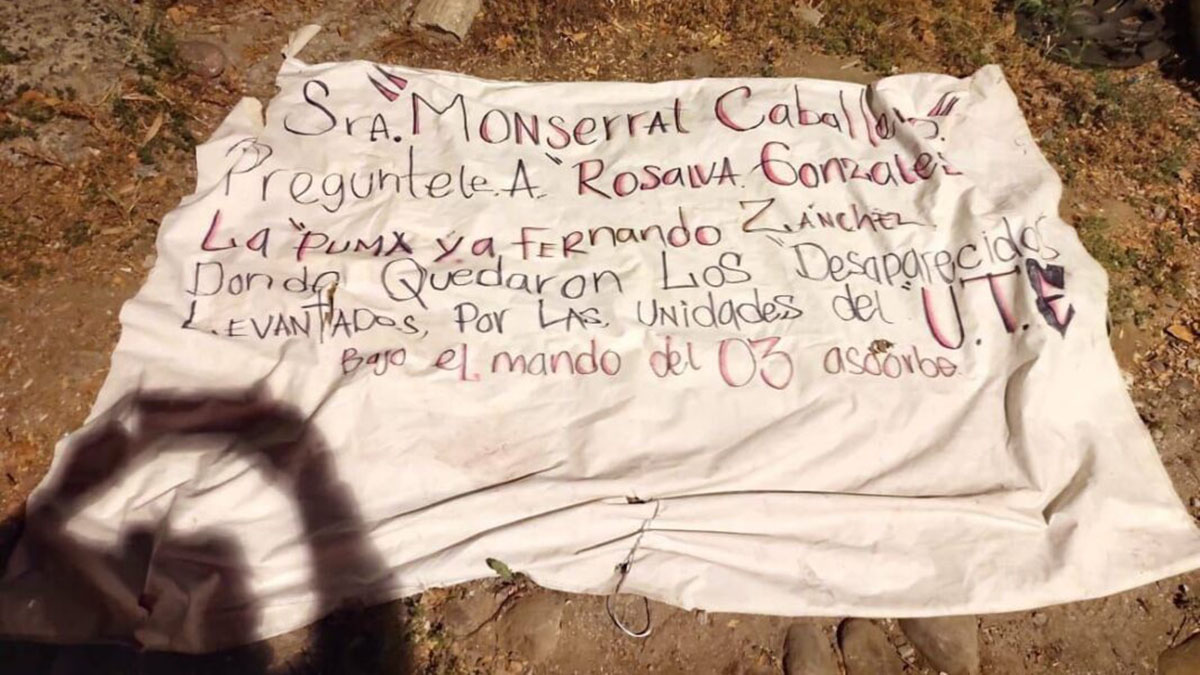 SrA. "Monserrat Caballero"
Preguntele.A. "Rosalva. Gonzalez
La "PUMA y a FERnando Z.ánchez.
Donde Quedaron Los "Desaparecidos
L.EVANTADOS, Por LAS, UNIdades del "U.T.E
Bajo el mando del 03 asoorbe.